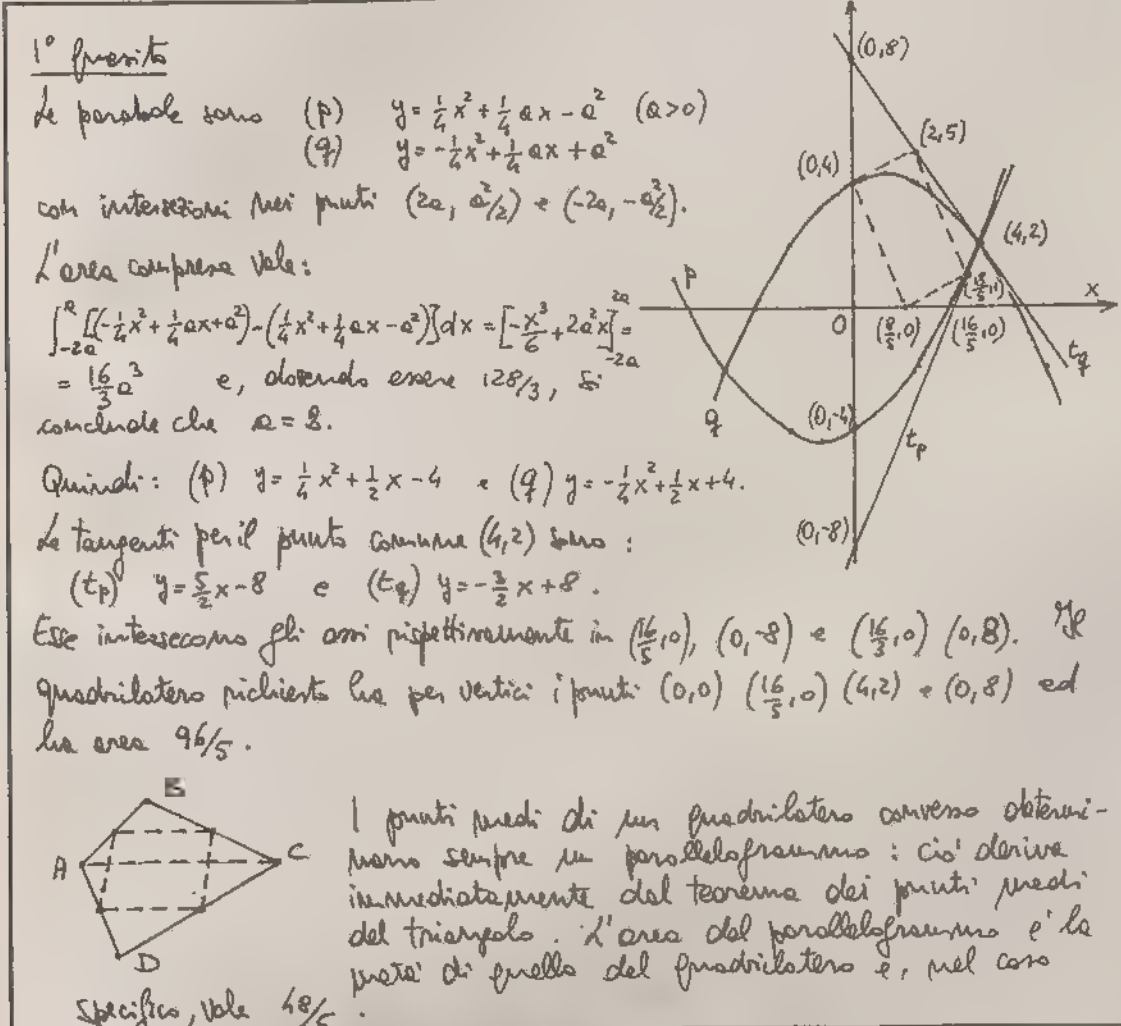 1° Quesito
Le parabole sono (p) y = 1/4 x² + 1/4 ax - a² (a>0)
(q) y = -1/4 x² + 1/4 ax + a²
con intersezioni nei punti (2a, a²/2) e (-2a, -a²/2).
L'area compresa vale:
∫_{-2a}^{a} [(-1/4 x² + 1/4 ax + a²) - (1/4 x² + 1/4 ax - a²)] dx = [-x³/6 + 2a²x]_{-2a}^{2a} =
= 16/3 a³ e, dovendo essere 128/3, si
conclude che a = 2.
Quindi: (p) y = 1/4 x² + 1/2 x - 4 e (q) y = -1/4 x² + 1/2 x + 4.
Le tangenti per il punto comune (4,2) sono:
(tp) y = 5/2 x - 8 e (tq) y = -3/2 x + 8.
Esse intersecano gli assi rispettivamente in (16/5, 0), (0,-8) e (16/3, 0) (0,8). Il
quadrilatero richiesto ha per vertici i punti (0,0) (16/5, 0) (4,2) e (0,8) ed
ha area 96/5.
(0,8)
(2,5)
(0,4)
(4,2)
p
(18/5, 1)
x
O
(8/5, 0)
(16/5, 0)
tq
q
(0,-4)
tp
(0,-8)
B
A
C
D
I punti medi di un quadrilatero convesso determi-
nano sempre un parallelogrammo: ciò deriva
immediatamente dal teorema dei punti medi
del triangolo. L'area del parallelogrammo è la
metà di quella del quadrilatero e, nel caso
specifico, vale 48/5.